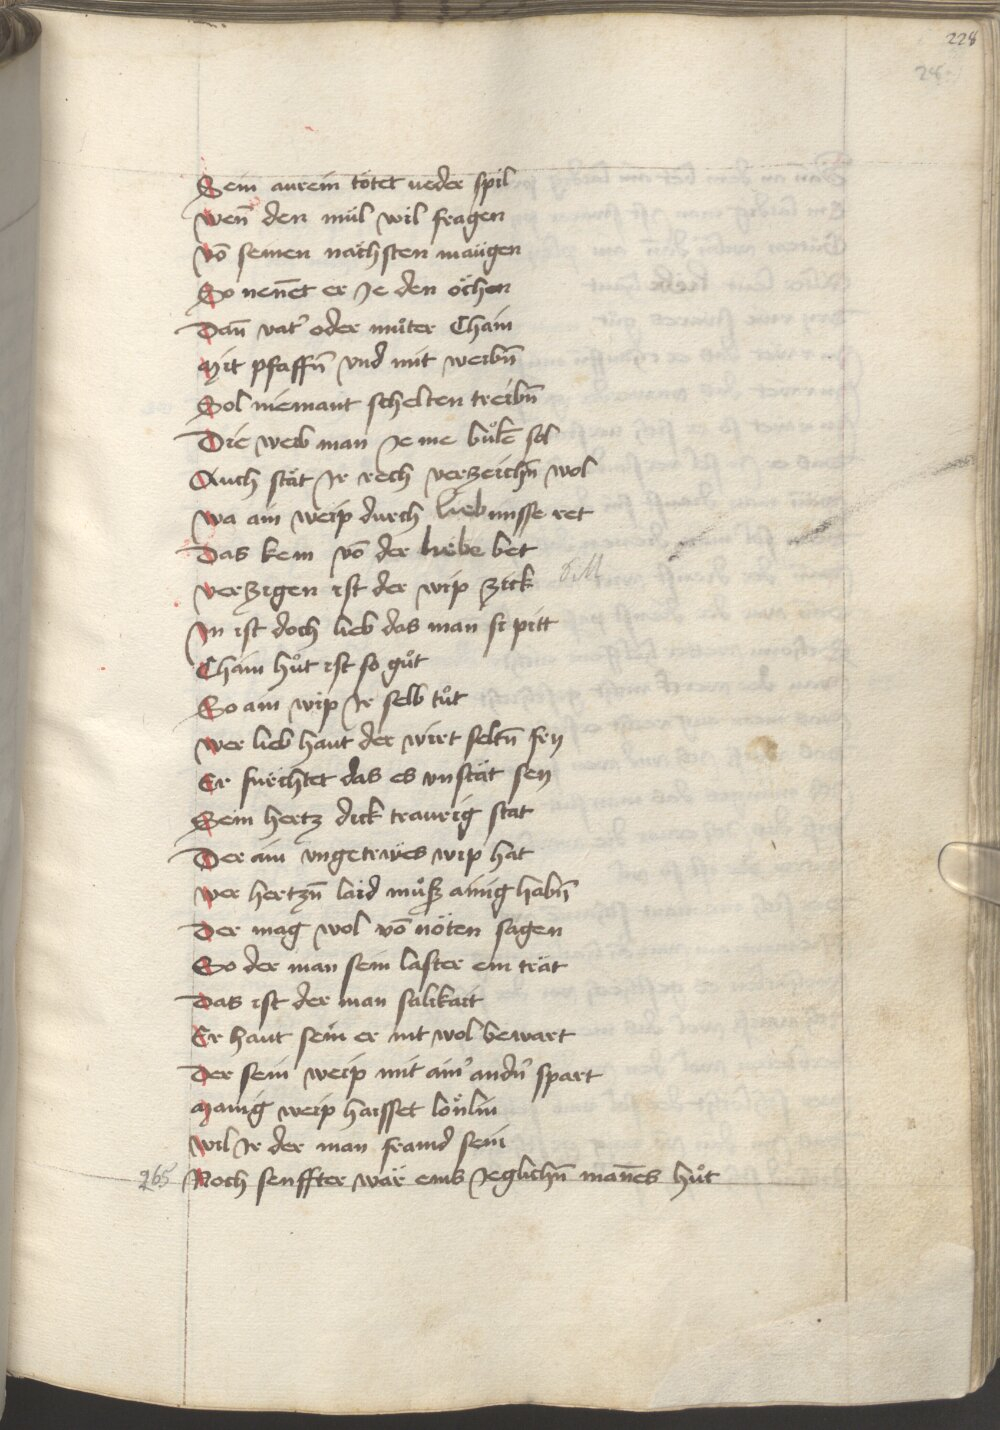 228
28
Sein aurein tötet ueder spil
Wen̄ den mul wil fragen
Vō semen nächsten maugen
So nen̄et er Je den öchen
Dan̄ vat' oder můter Chain
Mit pfaffn̄ vnd mit weibn̄
Sol niemant schelten treibn̄
Die weib man Je me bůlē sol
Auch stät Jr rech verzeichn̄ wol
Wa ain weip durch lieb nusse ret
Das kem vō der liebe bet
Verzigen ist der wip zick
Jn ist doch lieb das man si pitt
Chain hůt ist so gůt
So ain wip Jr selb tůt
Wer lieb haut der wirt seltn̄ fry
Er furchtet das es vnstät sey
Sein hertz dick traurig stat
Der ain vngetrwes wip hat
Wer hertzn̄ laid můß ainig habn̄
Der mag wol vō nöten sagen
So der man sein laster ein trät
Das ist der man salikait
Er haut sein er nit wol bewart
Der sein weip mit ain' andn' spart
Manig weip haisset lönlin
Wil Jr der man framd sein
265 Noch senffter wär eins Jeglichn̄ man̄es hůt